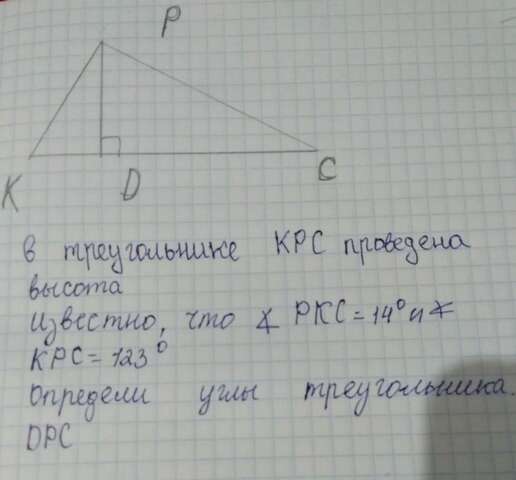 P
K
D
C
В треугольнике KPC проведена
высота
Известно, что ∡ PKC = 14° и ∡
KPC = 123°
Определи углы треугольника.
DPC